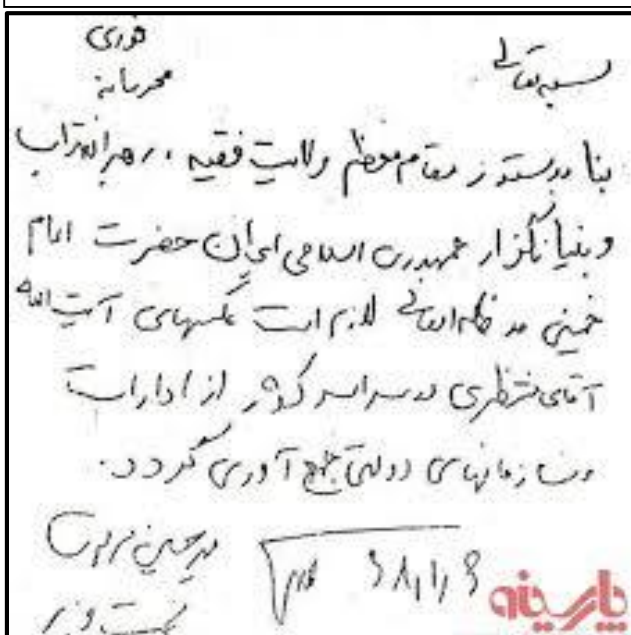 بسمه تعالی
فوری
محرمانه
بنا بدستور مقام معظم ولایت فقیه، رهبر انقلاب
و بنیانگزار جمهوری اسلامی ایران حضرت امام
خمینی مد ظله العالی لازم است عکسهای آیت الله
آقای منتظری در سراسر کشور از ادارات
و سازمانهای دولتی جمع آوری گردد.
میر حسین موسوی
نخست وزیر
۶۸,۱,۶
پارسینه